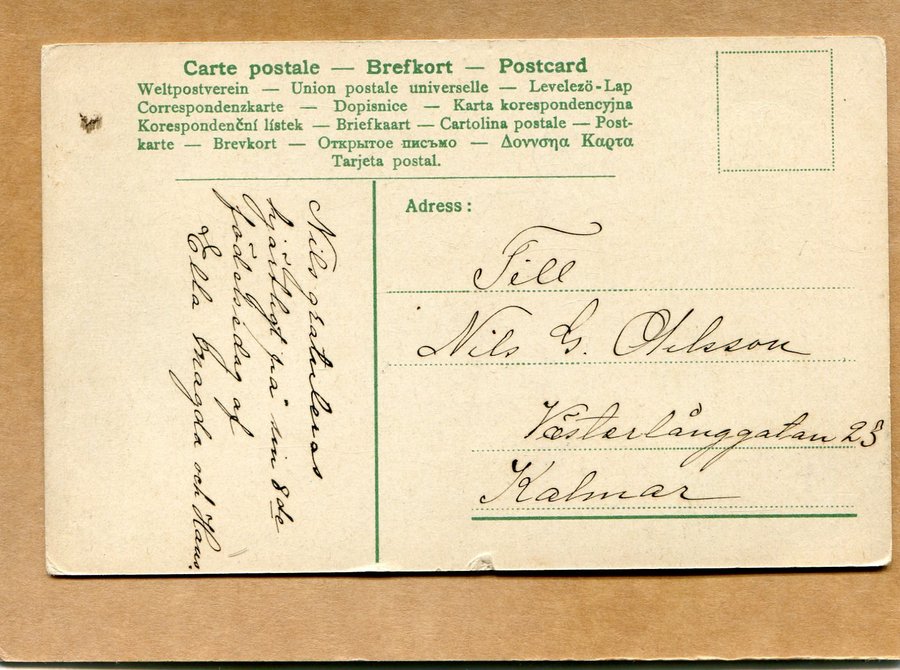 Carte postale — Brefkort — Postcard
Weltpostverein — Union postale universelle — Levelezö-Lap
Correspondenzkarte — Dopisnice — Karta korespondencyjna
Korespondenční lístek — Briefkaart — Cartolina postale — Post-
karte — Brevkort — Открытое письмо — Δοννσηα Καρτα
Tarjeta postal.
Nils gratuleras
hjärtligt på sin 8de
födelsedag af
Ella Magda och Hans.
Adress:
Till
Nils G. Nilsson
Västerlånggatan 23
Kalmar